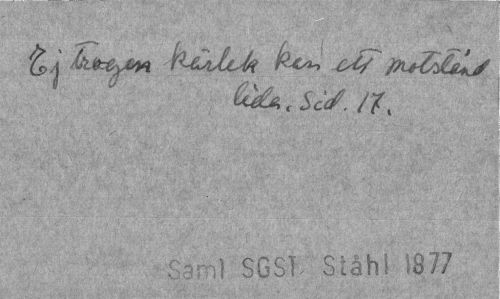 Ej trogen kärlek kan ett motstånd
lida. Sid. 17.
Saml SGST Ståhl 1877